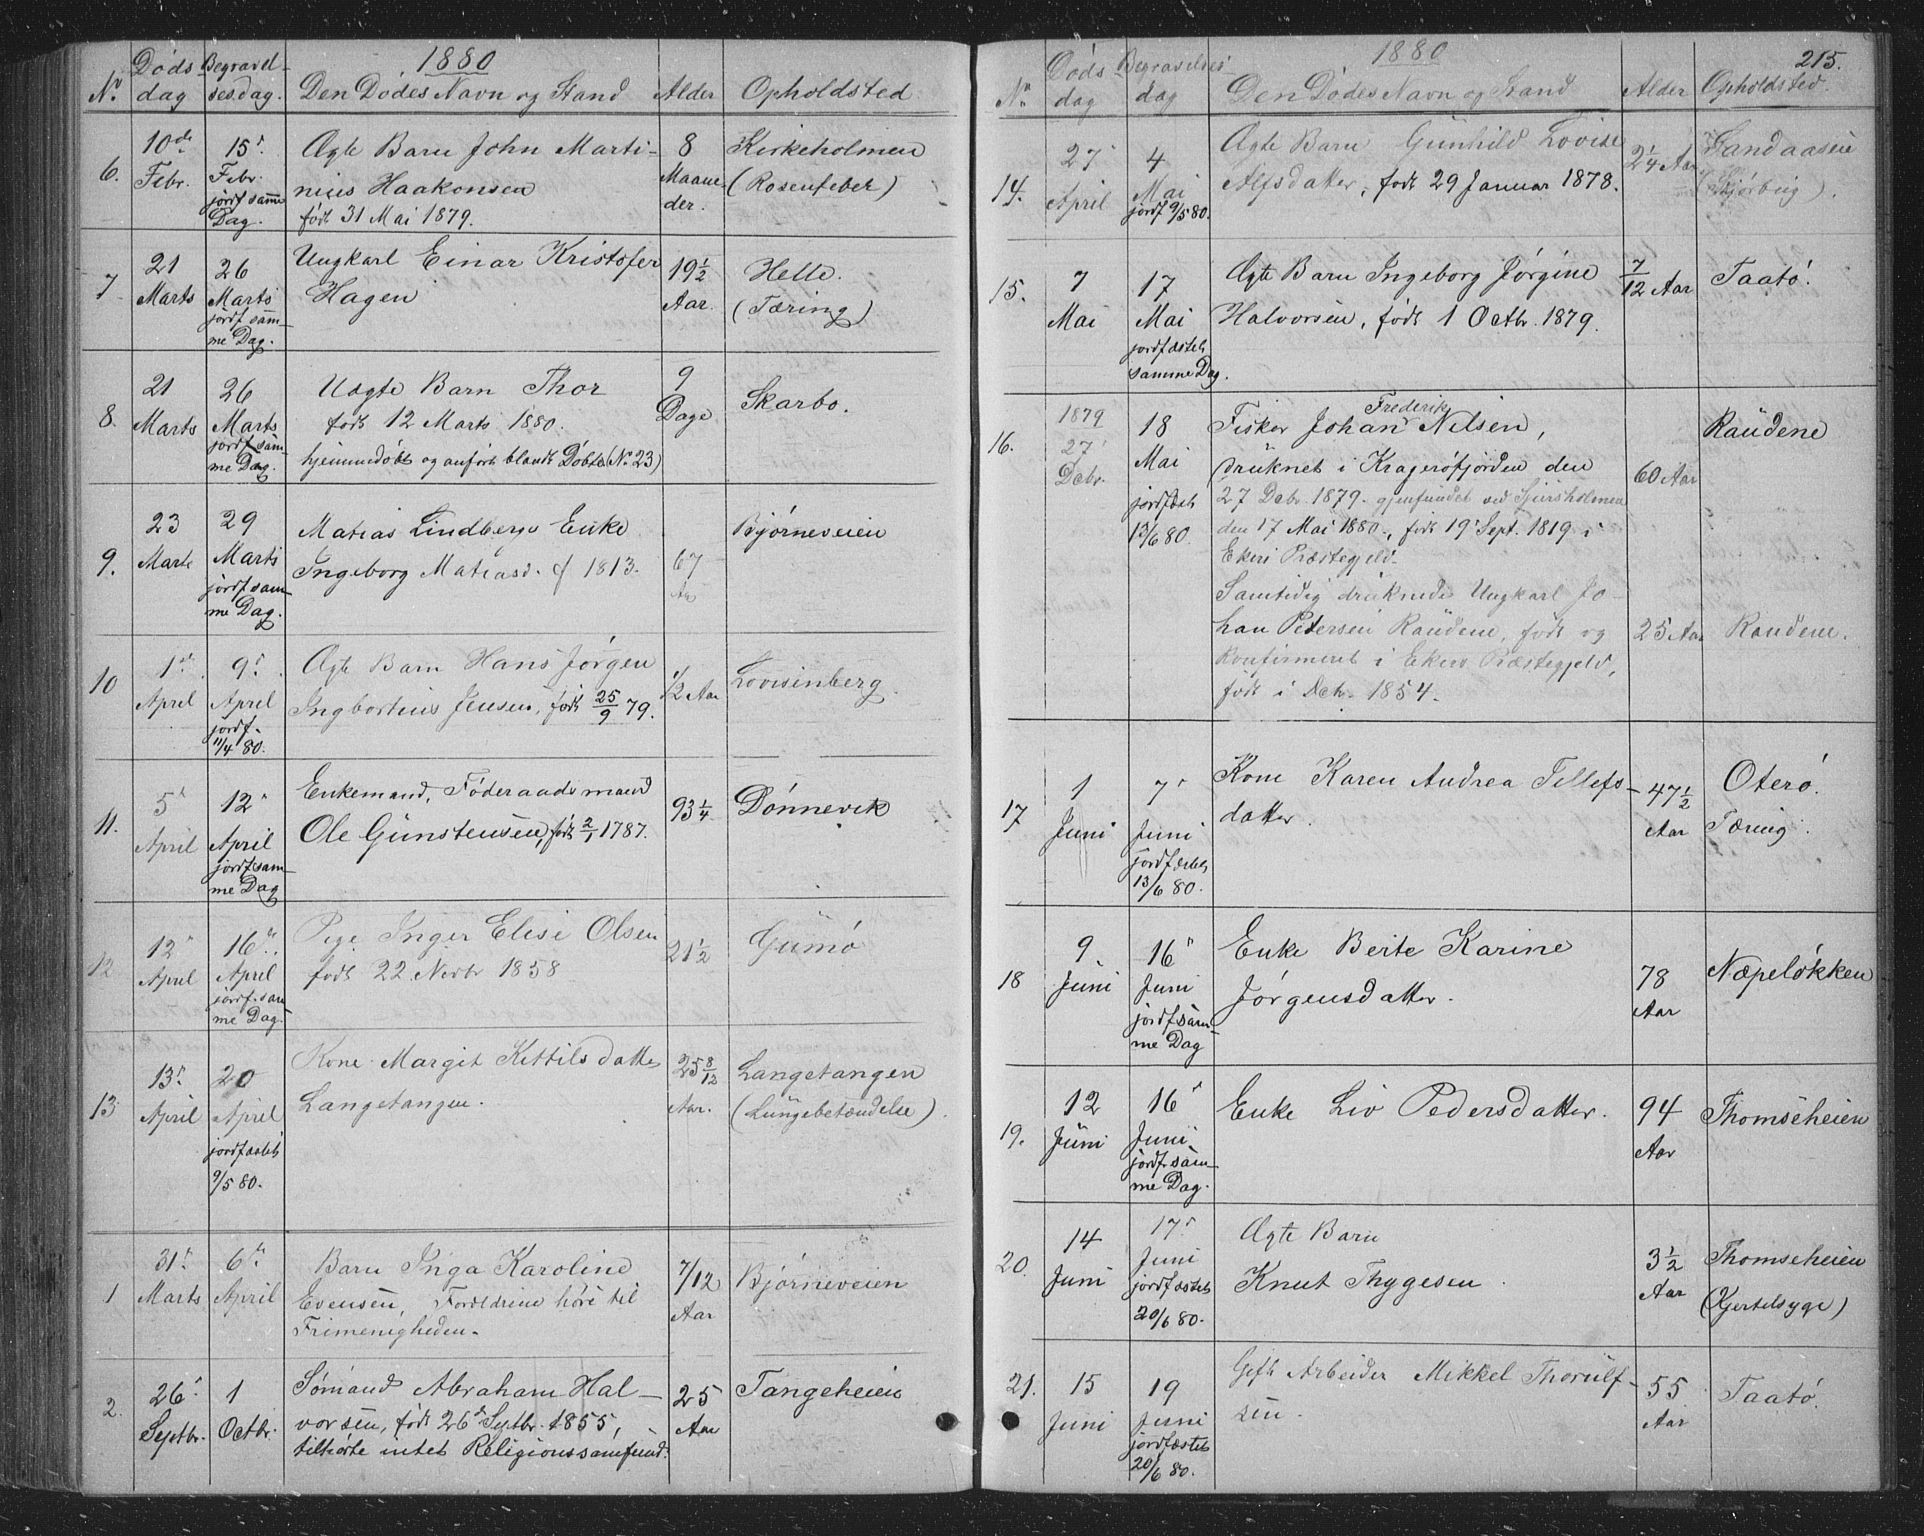 1880
No. Døds dag Begravel- sesdag. Den Dødes Navn og Stand Alder Opholdsted
6. 10de Febr. 15' Febr. jordf samme Dag. Ægte Barn John Marti-
nius Haakonsen
født 31 Mai 1879. 8 Maane- der. Kirkeholmen
(Rosenfeber)
7 21 Marts 26 Marts jordf sam- me Dag. Ungkarl Einar Kristofer
Hagen 19 1/2 Aar. Helle.
(Tæring)
8. 21 Marts 26 Marts jordf sam- me Dag. Uægte Barn Thor
født 12 Marts 1880.
hjemmedøbt og anført blandt Døbte (No. 23) 9 Dage Skarbo.
9. 23 Marts 29 Marts jordf sam- me Dag. Matias Lindbergs Enke
Ingeborg Matiasd. f 1813. 67 Aar Bjørneveien
10 1ste April 9' April jordf. 11/4 80. Ægte Barn Hans Jørgen
Ingbortius Jensen, født 25/9 79. 1/2 Aar Lovisenberg.
11. 5' April 12' April jordf sam- me Dag Enkemand, Føderaadsmand
Ole Gunstensen, født 2/1 1787. 93 1/4 Dønnevik
12 12' April 16' April jordf. sam me Dag. Pige Inger Elise Olsen
født 22 Novbr 1858 21 1/2 Gumø
13 13' April 20 April jordfæstet 9/5 80. Kone Margit Kittilsdatter
Langetangen. 25 8/12 Aar. Langetangen
(Lungebetændelse).
1 31' Marts 6te April Barn Inga Karoline
Evensen, Forældrene høre til
Frimenigheden. 7/12 Aar Bjørneveien
2. 26' Septbr. 1 Octbr. Sømand Abraham Hal-
vorsen, født 26d Septbr. 1855,
tilhørte intet Religionssamfund. 25 Aar Tangeheien
1880
215.
No. Døds dag Begravelses dag Den Dødes Navn og Stand Alder Opholdsted.
14. 27 April 4 Mai jordf 9/5 80. Ægte Barn Gunhild Lovise
Alfsdatter, født 29 Januar 1878. 2 1/4 Aar Sandaasen
(Skjørbug).
15. 7 Mai 17 Mai jordfæstet samme Dag. Ægte Barn Ingeborg Jørgine
Halvorsen, født 1 Octbr. 1879. 7/12 Aar Taatø.
16. 1879 27' Debr. 18 Mai jordfæstet 13/6 80. Fisker Johan Frederik Nilsen,
(druknet i Kragerøfjorden den
27 Debr. 1879. gjenfundet ved Sjursholmen
den 17 Mai 1880., født 19' Sept. 1819 i
Ekers Præstegjeld. 60 Aar Raudene
Samtidig druknede Ungkarl Jo-
han Petersen Raudene, født og
konfirmeret i Ekers Præstegjeld,
født i Dcb. 1854. 25 Aar Raudene.
17 1 Juni 7' Juni jordfæstet 13/6 80. Kone Karen Andrea Tellefs-
datter. 47 1/2 Aar Oterø.
Tæring.
18 9. Juni 16' Juni jordf sam- me Dag Enke Berte Karine
Jørgensdatter. 78 Aar Næpeløkken
19. 12 Juni 16' Juni. jordf. sam- me Dag. Enke Liv Pedersdatter. 94 Aar Thomseheien
20. 14 Juni 17' Juni jordfæstet 20/6 80. Ægte Barn
Knut Thygesen. 3 1/2 Aar Thomseheien
(Kjertelsyge)
21. 15 Juni 19 Juni jordfæstet 20/6 80. Gift Arbeider Mikkel Thorulf-
sen. 55 Aar Taatø.